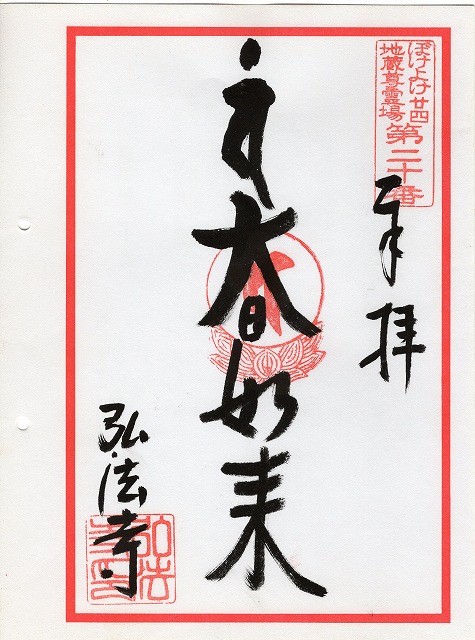 ぼけよけ廿四
地蔵尊靈場
第二十番
奉拝
大日如来
弘法寺
弘法
寺印